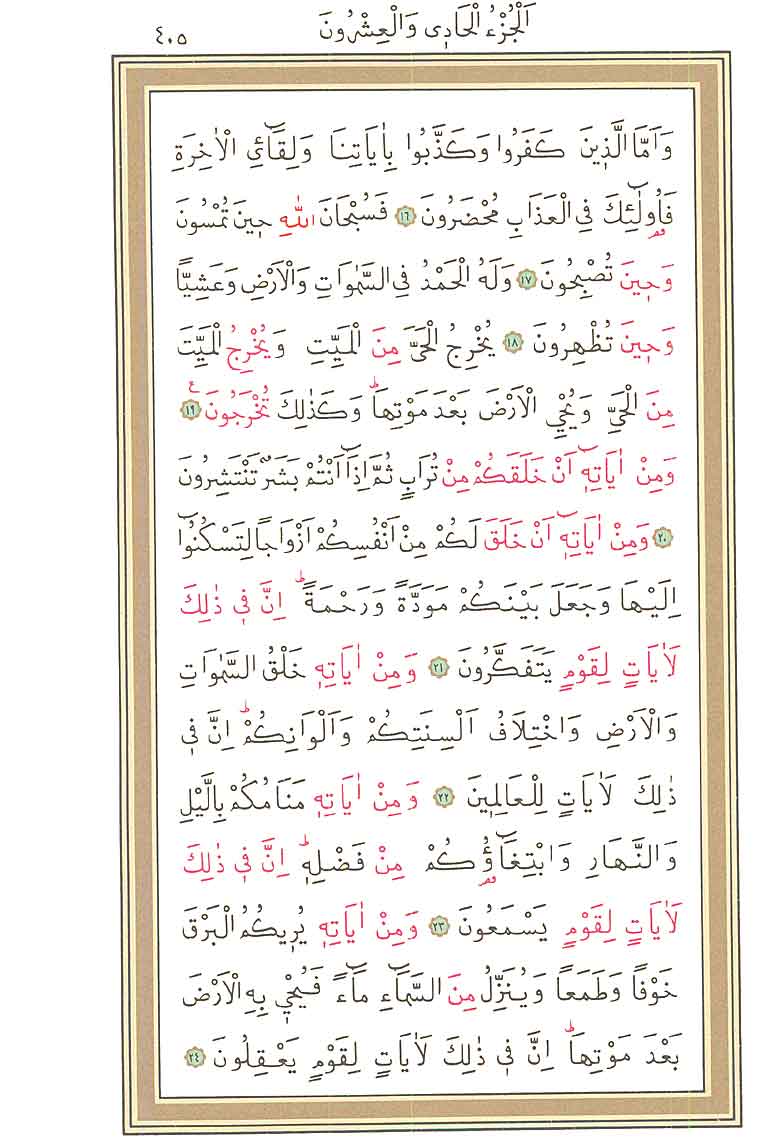 اَلْجُزْءُ الْحَادٖى وَالْعِشْرُونَ ٤٠٥
وَاَمَّا الَّذٖينَ كَفَرُوا وَكَذَّبُوا بِاٰيَاتِنَا وَلِقَٓائِ الْاٰخِرَةِ
فَاُو۬لٰٓئِكَ فِى الْعَذَابِ مُحْضَرُونَ ﴿١٦﴾ فَسُبْحَانَ اللّٰهِ حٖينَ تُمْسُونَ
وَحٖينَ تُصْبِحُونَ ﴿١٧﴾ وَلَهُ الْحَمْدُ فِى السَّمٰوَاتِ وَالْاَرْضِ وَعَشِيًّا
وَحٖينَ تُظْهِرُونَ ﴿١٨﴾ يُخْرِجُ الْحَىَّ مِنَ الْمَيِّتِ وَيُخْرِجُ الْمَيِّتَ
مِنَ الْحَىِّ وَيُحْىِ الْاَرْضَ بَعْدَ مَوْتِهَاؕ وَكَذٰلِكَ تُخْرَجُونَ ࣖ ﴿١٩﴾
وَمِنْ اٰيَاتِهٖٓ اَنْ خَلَقَكُمْ مِنْ تُرَابٍ ثُمَّ اِذَٓا اَنْتُمْ بَشَرٌ تَنْتَشِرُونَ
﴿٢٠﴾ وَمِنْ اٰيَاتِهٖٓ اَنْ خَلَقَ لَكُمْ مِنْ اَنْفُسِكُمْ اَزْوَاجًا لِتَسْكُنُٓوا
اِلَيْهَا وَجَعَلَ بَيْنَكُمْ مَوَدَّةً وَرَحْمَةًؕ اِنَّ فٖى ذٰلِكَ
لَاٰيَاتٍ لِقَوْمٍ يَتَفَكَّرُونَ ﴿٢١﴾ وَمِنْ اٰيَاتِهٖ خَلْقُ السَّمٰوَاتِ
وَالْاَرْضِ وَاخْتِلَافُ اَلْسِنَتِكُمْ وَاَلْوَانِكُمْؕ اِنَّ فٖى
ذٰلِكَ لَاٰيَاتٍ لِلْعَالِمٖينَ ﴿٢٢﴾ وَمِنْ اٰيَاتِهٖ مَنَامُكُمْ بِالَّيْلِ
وَالنَّهَارِ وَابْتِغَٓاؤُ۬كُمْ مِنْ فَضْلِهٖؕ اِنَّ فٖى ذٰلِكَ
لَاٰيَاتٍ لِقَوْمٍ يَسْمَعُونَ ﴿٢٣﴾ وَمِنْ اٰيَاتِهٖ يُرٖيكُمُ الْبَرْقَ
خَوْفًا وَطَمَعًا وَيُنَزِّلُ مِنَ السَّمَٓاءِ مَٓاءً فَيُحْيٖ بِهِ الْاَرْضَ
بَعْدَ مَوْتِهَاؕ اِنَّ فٖى ذٰلِكَ لَاٰيَاتٍ لِقَوْمٍ يَعْقِلُونَ ﴿٢٤﴾